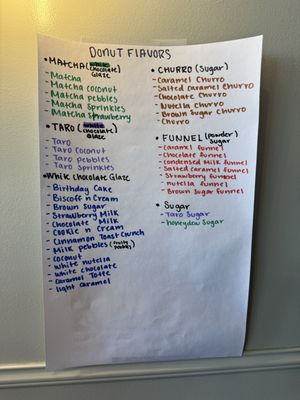 DONUT FLAVORS
• MATCHA (white chocolate Glaze)
- Matcha
- Matcha coconut
- Matcha pebbles
- Matcha sprinkles
- Matcha strawberry
• TARO (white chocolate glaze)
- Taro
- Taro Coconut
- Taro pebbles
- Taro Sprinkles
• White Chocolate Glaze
- Birthday Cake
- Biscoff n Cream
- Brown Sugar
- Strawberry Milk
- Chocolate Milk
- Cookie n Cream
- Cinnamon Toast Crunch
- Milk pebbles (fruity pebbles)
- Coconut
- white nutella
- white chocolate
- Caramel Toffe
- light caramel
• CHURRO (Sugar)
- Caramel Churro
- Salted Caramel Churro
- Chocolate Churro
- Nutella Churro
- Brown Sugar Churro
- Churro
• FUNNEL (powder Sugar)
- Caramel funnel
- Chocolate funnel
- Condensed Milk funnel
- Salted Caramel funnel
- Strawberry funnel
- nutella funnel
- Brown Sugar funnel
• Sugar
- Taro Sugar
- honeydew Sugar